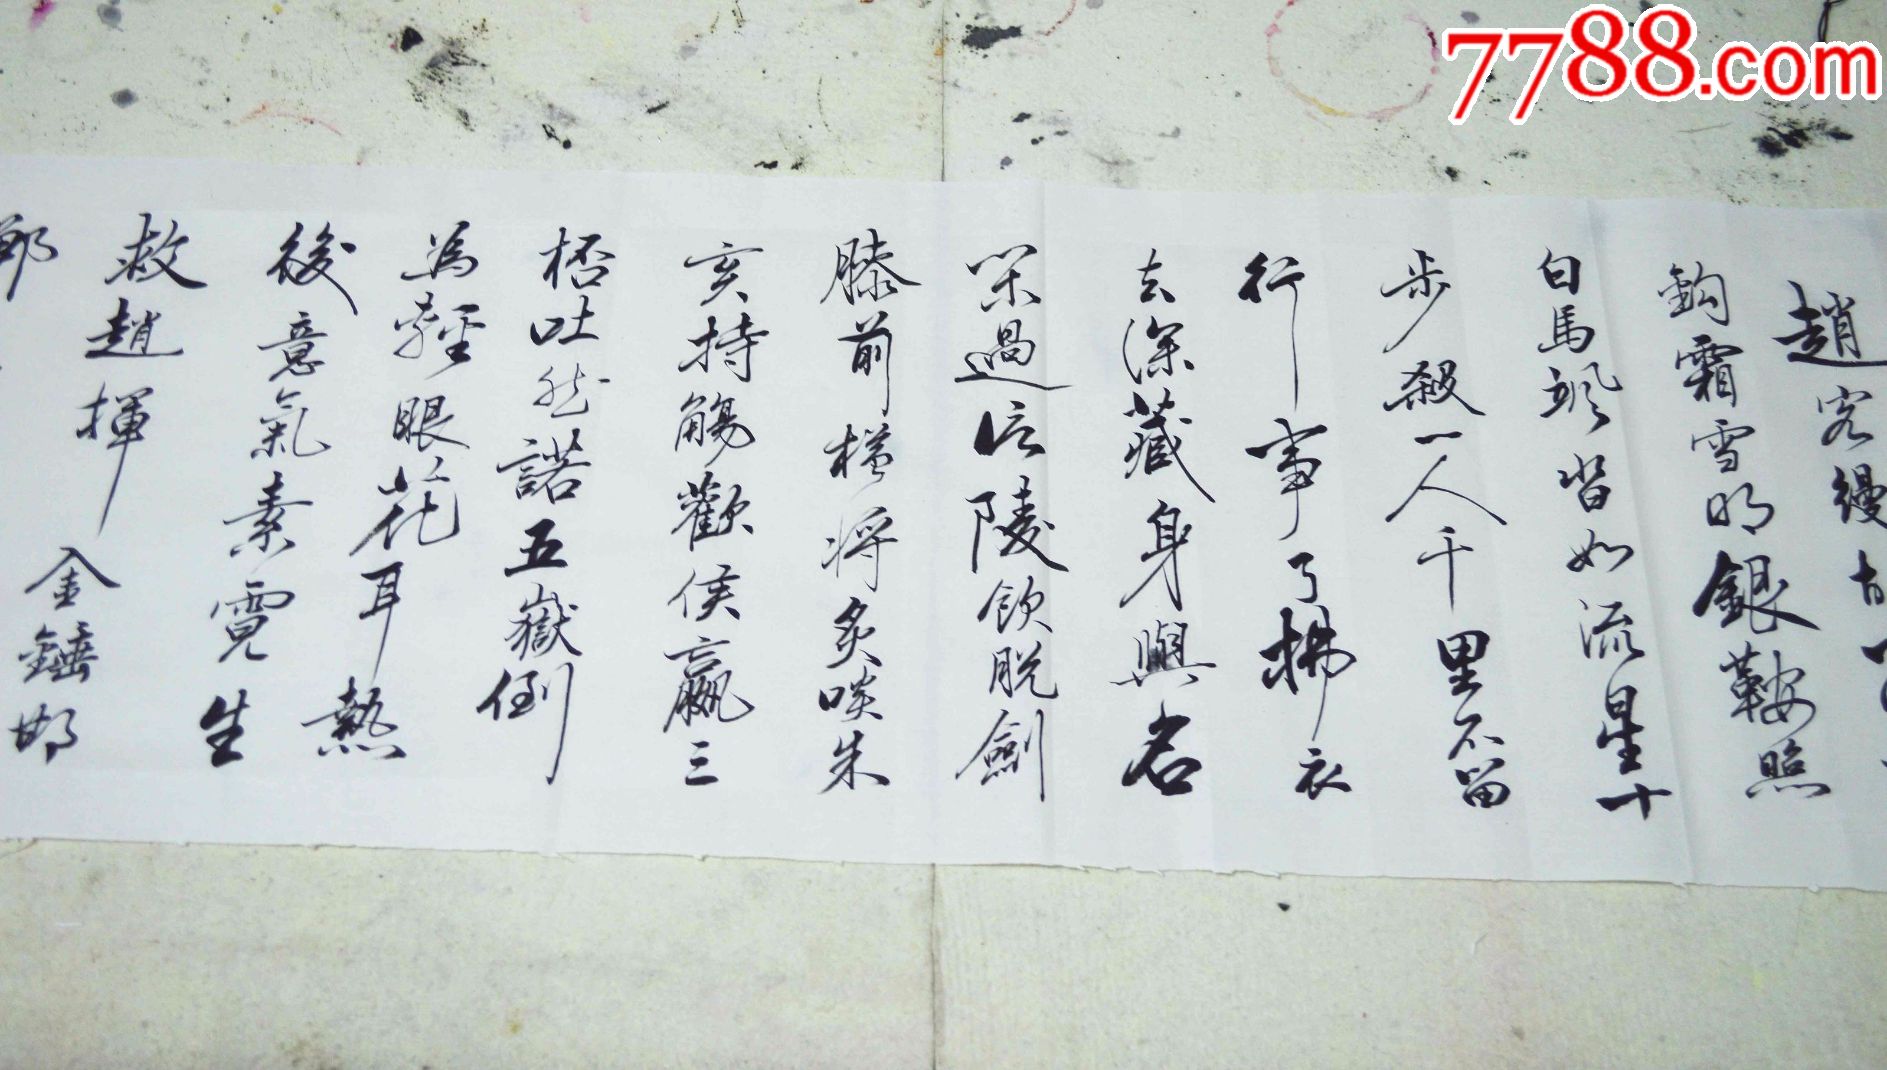 7788.com
趙客縵胡
鈎霜雪明銀鞍照
白馬颯沓如流星十
步殺一人千里不留
行事了拂衣
去深藏身與名
閑過信陵飲脫劍
膝前橫將炙啖朱
亥持觴勸侯嬴三
桮吐然諾五嶽倒
為輕眼花耳熱
後意氣素霓生
救趙揮金錘邯
鄲